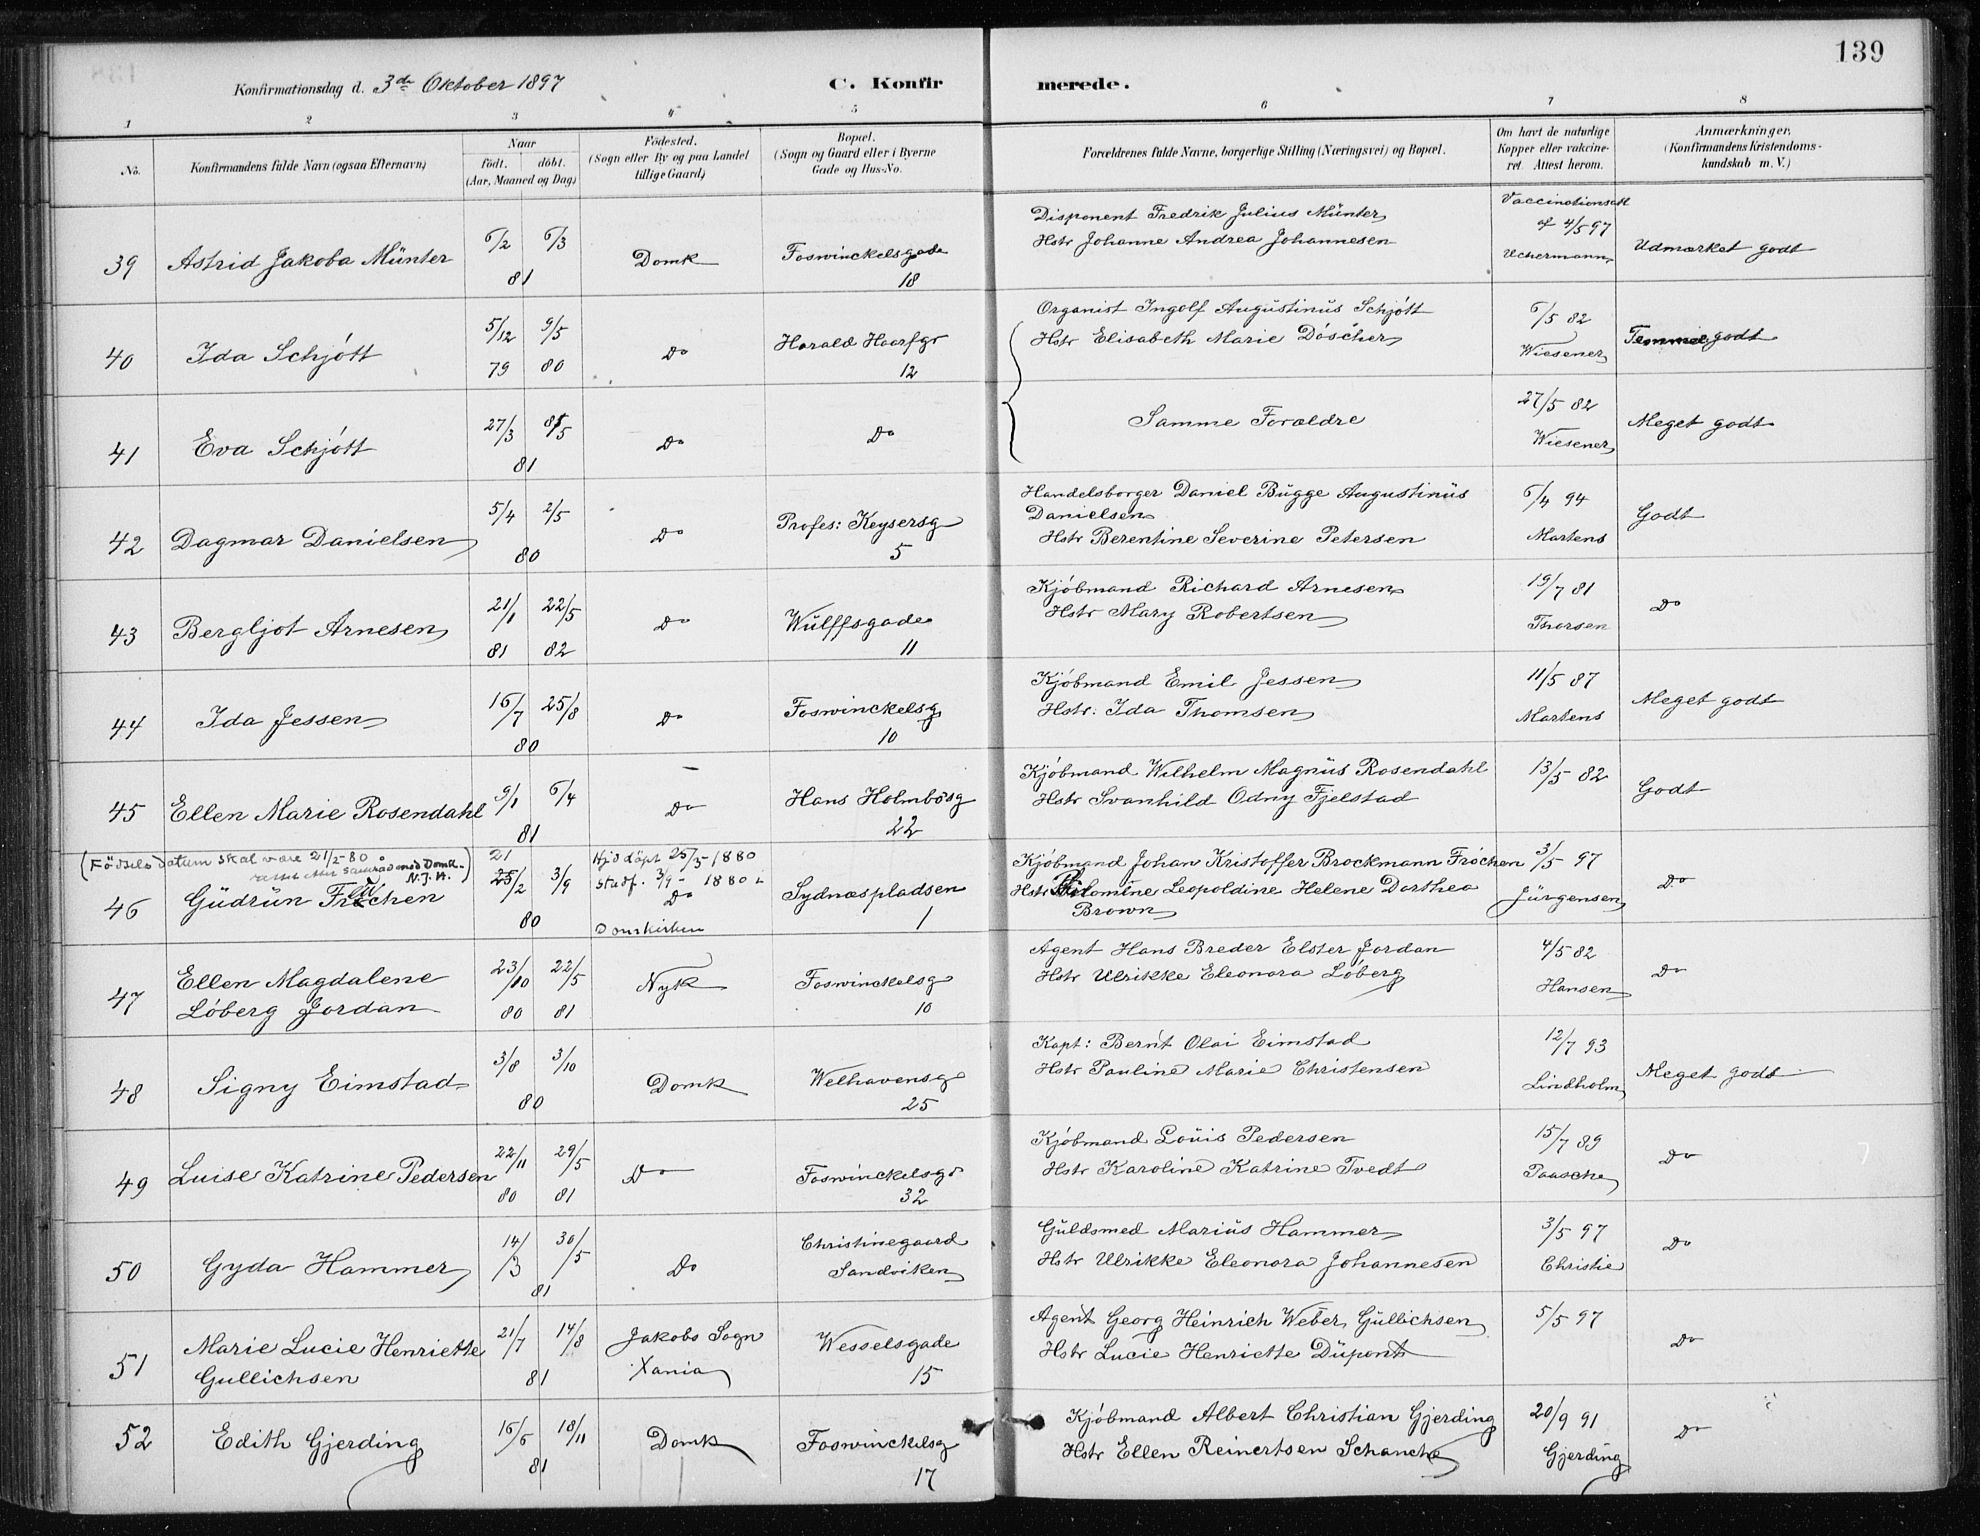 139
Konfirmationsdag d. 3de Oktober 1897
C. Konfirmerede.
1 2 3 4 5 6 7 8
No.
Konfirmandens fulde Navn (ogsaa Efternavn)
Naar
født. døbt.
(Aar, Maaned og Dag)
Fødested.
(Sogn eller By og paa Landet
tillige Gaard)
Bopæl.
(Sogn og Gaard eller i Byerne
Gade og Hus-No.
Forældrenes fulde Navne, borgerlige Stilling (Næringsvei) og Bopæl.
Om havt de naturlige
Kopper eller vakcine-
ret. Attest herom.
Anmærkninger.
(Konfirmandens Kristendoms-
kundskab m. V.)
39 Astrid Jakoba Münter 6/2 6/3 81 Domk Foswinckelsgade 18
Disponent Fredrik Julius Münter
Hstr Johanne Andrea Johannesen
Vaccinationsatt
af 4/5 97
Uchermann
Udmærket godt
40 Ida Schjótt 5/12 79 9/5 80 Do Harald Haarfgr 12
Organist Ingolf Augustinus Schjótt
Hstr Elisabeth Marie Dóscher
6/5 82
Wiesener
Temmelig godt
41 Eva Schjótt 27/3 8/5 81 Do Do
Samme Forældre
27/5 82
Wiesener
Meget godt
42 Dagmar Danielsen 5/4 2/5 80 Do Profes: Keysersg 5
Handelsborger Daniel Bugge Augustinus
Danielsen
Hstr Berentine Severine Petersen
6/4 94
Martens
Godt
43 Bergljot Arnesen 21/1 81 22/5 82 Do Wulffsgade 11
Kjóbmand Richard Arnesen
Hstr Mary Robertsen
19/7 81
Thorsen
Do
44 Ida Jessen 16/7 25/8 80 Do Foswinckelsg 10
Kjóbmand Emil Jessen
Hstr. Ida Thomsen
11/5 87
Martens
Meget godt
45 Ellen Marie Rosendahl 9/1 6/4 81 Do Hans Holmbósg 22
Kjóbmand Wilhelm Magnus Rosendahl
Hstr Svanhild Odny Fjelstad
13/5 82
Godt
(Fødselsdatum skal være 21/2-80
rettet efter samraad med Domk.
N.J.H.)
21
Hjd döpt 25/3-1880
stadf. 3/9-1880 i
Domkirken
46 Gudrun Fröchen 25/2 3/9 80 Do Sydnæspladsen 1
Kjóbmand Johan Kristoffer Brockmann Fróchen
Hstr Filomine Leopoldine Helene Dorthea
Brown
3/5 97
Jürgensen
Do
47 Ellen Magdalene
Lóberg Jordan 23/10 80 22/5 81 Nyk Foswinckelsg 10
Agent Hans Breder Elster Jordan
Hstr Ulrikke Eleonora Lóberg
4/5 82
Hansen
Do
48 Signy Eimstad 3/8 3/10 80 Domk Welhavensg 25
Kapt: Bernt Olai Eimstad
Hstr Pauline Marie Christensen
12/7 93
Lindholm
Meget godt
49 Luise Katrine Pedersen 22/11 80 29/5 81 Do Foswinckelsg 32
Kjóbmand Louis Pedersen
Hstr Karoline Katrine Tvedt
15/7 89
Paasche
Do
50 Gyda Hammer 14/3 30/5 81 Do Christinegaard
Sandviken
Guldsmed Marius Hammer
Hstr Ulrikke Eleonora Johannesen
3/5 97
Christie
Do
51 Marie Lucie Henriette
Gullichsen 21/7 14/8 81 Jakobs Sogn
Xania
Wesselsgade 15
Agent Georg Heinrich Weber Gullichsen
Hstr Lucie Henriette Dupont
5/5 97
Do
52 Edith Gjerding 16/6 18/11 81 Domk Foswinckelsg 17
Kjóbmand Albert Christian Gjerding
Hstr Ellen Reinertsen Schanche
20/9 91
Gjerding
Do